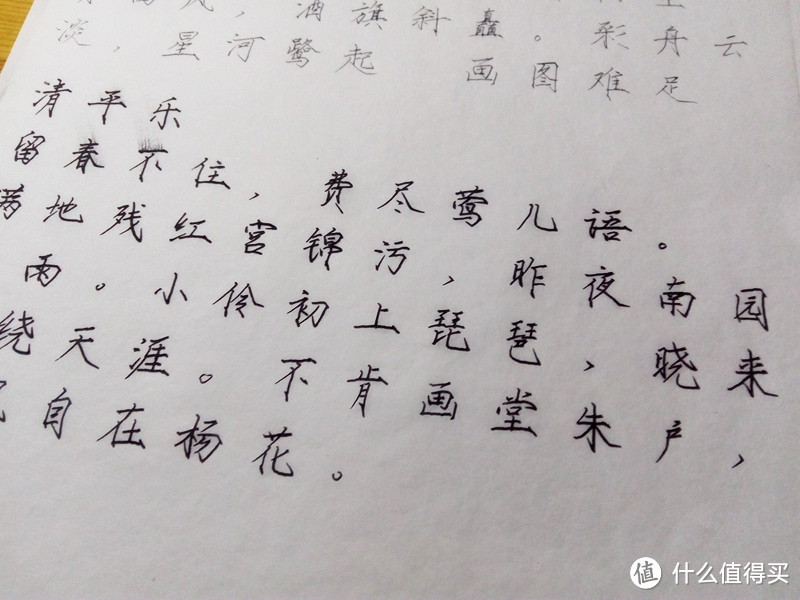 酒旗斜矗。彩
淡，星河鹭起 画图难足 舟云
清平乐
留春不住，费尽莺儿语。
满地残红宫锦污，昨夜南园
雨。小伶初上琵琶，晓来
绕天涯。不肯画堂朱户，
自在杨花。
值 什么值得买